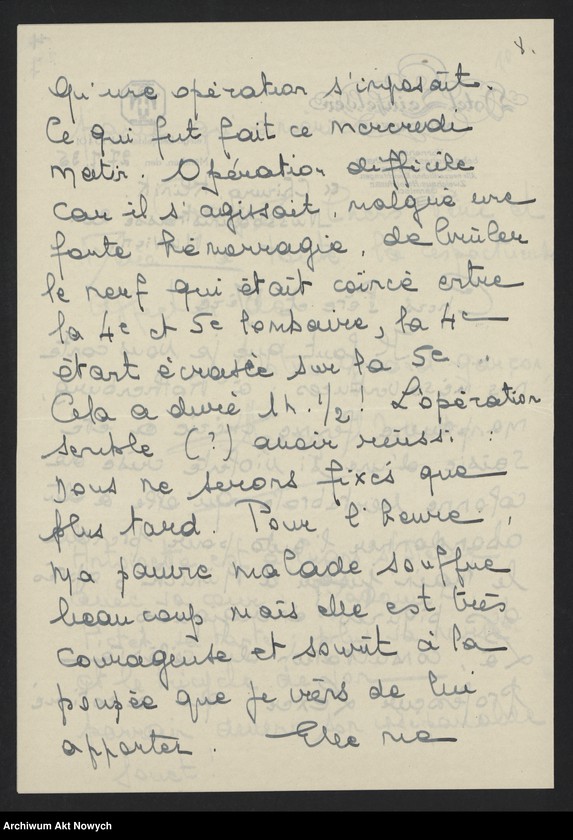 8.
Qu'une opération s'imposait.
Ce qui fut fait ce mercredi
matin. Opération difficile
car il s'agissait, malgré une
forte hémorragie, de brûler
le nerf qui était coincé entre
la 4e et 5e lombaire, la 4e
étant écrasée sur la 5e.
Cela a duré 1h. 1/2! L'opération
semble (?) avoir réussi :
nous ne serons fixés que
plus tard. Pour l'heure,
ma pauvre malade souffre
beaucoup mais elle est très
courageuse et sourit à la
poupée que je viens de lui
apporter. — Elle me
Archiwum Akt Nowych